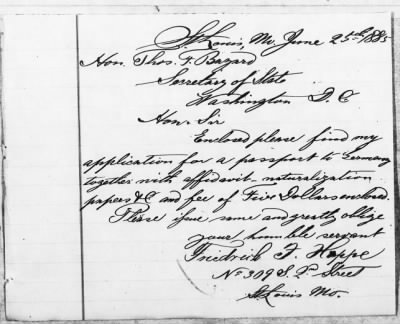 St. Louis, Mo, June 25th 1885
Hon. Thos. F. Bayard
Secretary of State
Washington D. C
Hon. Sir
Enclosed please find my
application for a passport to Germany
together with affidavit naturalization
papers &C and fee of Five Dollars enclosed.
Please issue same and greatly oblige
your humble servant
Friedrich F. Hoppe
No 309 S. 2d Street
St Louis Mo.